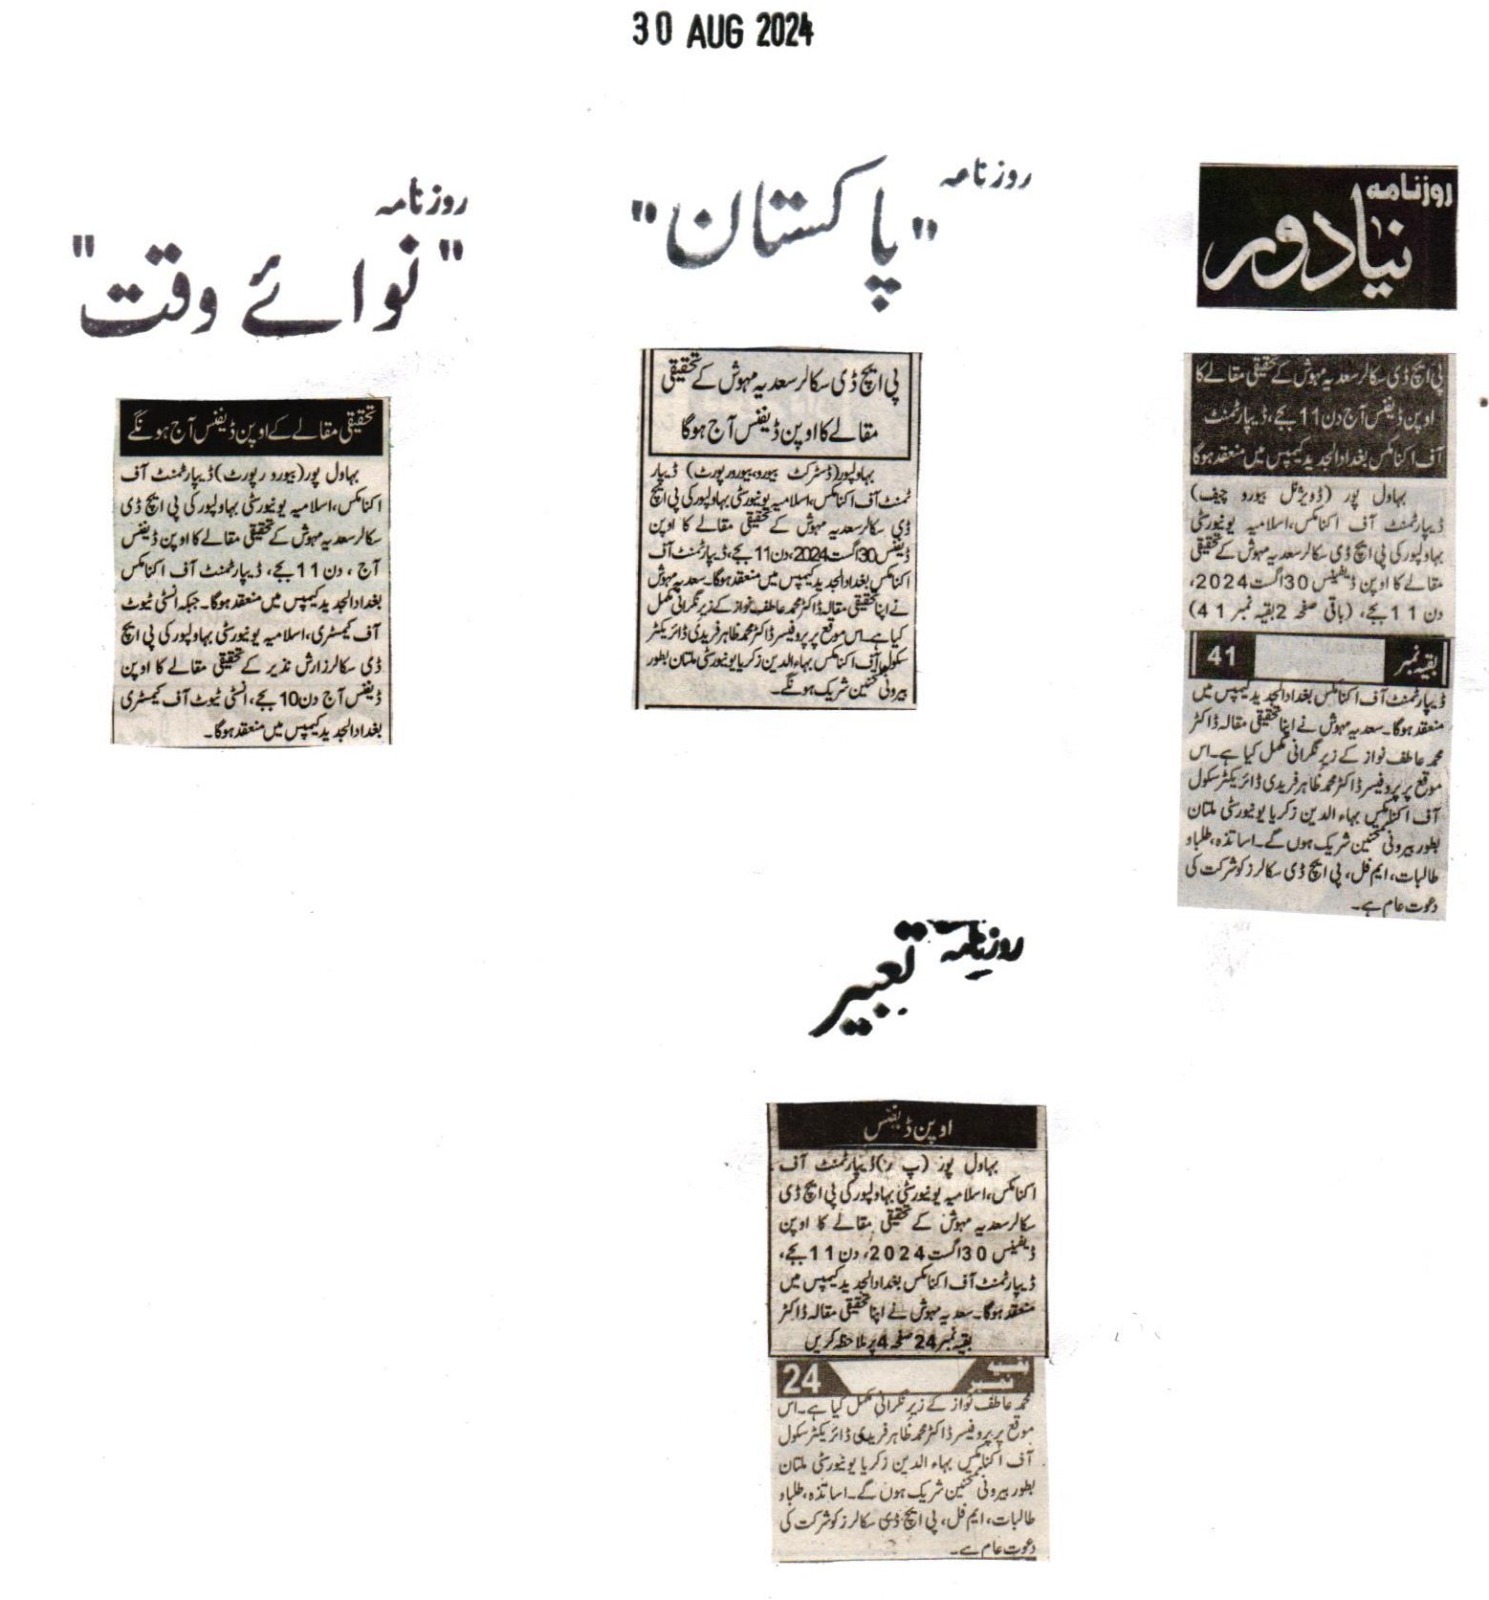 30 AUG 2024
روزنامہ
"نوائے وقت"
تحقیقی مقالے کے اوپن ڈیفنس آج ہونگے
بہاول پور (بیورو رپورٹ) ڈیپارٹمنٹ آف
اکنامکس، اسلامیہ یونیورسٹی بہاولپور کی پی ایچ ڈی
سکالر سعدیہ مہوش کے تحقیقی مقالے کا اوپن ڈیفنس
آج ، دن 11 بجے، ڈیپارٹمنٹ آف اکنامکس
بغداد الجدید کیمپس میں منعقد ہوگا۔ جبکہ انسٹی ٹیوٹ
آف کیمسٹری، اسلامیہ یونیورسٹی بہاولپور کی پی ایچ
ڈی سکالر زارش نذیر کے تحقیقی مقالے کا اوپن
ڈیفنس آج دن 10 بجے، انسٹی ٹیوٹ آف کیمسٹری
بغداد الجدید کیمپس میں منعقد ہوگا۔
روزنامہ
"پاکستان"
پی ایچ ڈی سکالر سعدیہ مہوش کے تحقیقی
مقالے کا اوپن ڈیفنس آج ہوگا
بہاولپور (ڈسٹرکٹ بیورو، بیورو رپورٹ) ڈیپار
ٹمنٹ آف اکنامکس، اسلامیہ یونیورسٹی بہاولپور کی پی ایچ
ڈی سکالر سعدیہ مہوش کے تحقیقی مقالے کا اوپن
ڈیفنس 30 اگست 2024، دن 11 بجے، ڈیپارٹمنٹ آف
اکنامکس بغداد الجدید کیمپس میں منعقد ہوگا۔ سعدیہ مہوش
نے اپنا تحقیقی مقالہ ڈاکٹر محمد عاطف نواز کے زیر نگرانی مکمل
کیا ہے۔ اس موقع پر پروفیسر ڈاکٹر محمد ظاہر فریدی ڈائریکٹر
سکول آف اکنامکس بہاء الدین زکریا یونیورسٹی ملتان بطور
بیرونی ممتحنین شریک ہونگے۔
روزنامہ
نیا دور
پی ایچ ڈی سکالر سعدیہ مہوش کے تحقیقی مقالے کا
اوپن ڈیفنس آج دن 11 بجے، ڈیپارٹمنٹ
آف اکنامکس بغداد الجدید کیمپس میں منعقد ہوگا
بہاول پور (ڈویژنل بیورو چیف)
ڈیپارٹمنٹ آف اکنامکس، اسلامیہ یونیورسٹی
بہاولپور کی پی ایچ ڈی سکالر سعدیہ مہوش کے تحقیقی
مقالے کا اوپن ڈیفینس 30 اگست 2024،
دن 11 بجے، (باقی صفحہ 2 بقیہ نمبر 41)
بقیہ نمبر 41
ڈیپارٹمنٹ آف اکنامکس بغداد الجدید کیمپس میں
منعقد ہوگا۔ سعدیہ مہوش نے اپنا تحقیقی مقالہ ڈاکٹر
محمد عاطف نواز کے زیر نگرانی مکمل کیا ہے۔ اس
موقع پر پروفیسر ڈاکٹر محمد ظاہر فریدی ڈائریکٹر سکول
آف اکنامکس بہاء الدین زکریا یونیورسٹی ملتان
بطور بیرونی ممتحنین شریک ہوں گے۔ اساتذہ، طلباو
طالبات، ایم فل، پی ایچ ڈی سکالرز کو شرکت کی
دعوت عام ہے۔
روزنامہ تعبیر
اوپن ڈیفنس
بہاول پور (پ ر) ڈیپارٹمنٹ آف
اکنامکس، اسلامیہ یونیورسٹی بہاولپور کی پی ایچ ڈی
سکالر سعدیہ مہوش کے تحقیقی مقالے کا اوپن
ڈیفینس 30 اگست 2024، دن 11 بجے،
ڈیپارٹمنٹ آف اکنامکس بغداد الجدید کیمپس میں
منعقد ہوگا۔ سعدیہ مہوش نے اپنا تحقیقی مقالہ ڈاکٹر
بقیہ نمبر 24 صفحہ 4 پر ملاحظہ کریں
بقیہ نمبر 24
محمد عاطف نواز کے زیر نگرانی مکمل کیا ہے۔ اس
موقع پر پروفیسر ڈاکٹر محمد ظاہر فریدی ڈائریکٹر سکول
آف اکنامکس بہاء الدین زکریا یونیورسٹی ملتان
بطور بیرونی ممتحنین شریک ہوں گے۔ اساتذہ، طلباو
طالبات، ایم فل، پی ایچ ڈی سکالرز کو شرکت کی
دعوت عام ہے۔